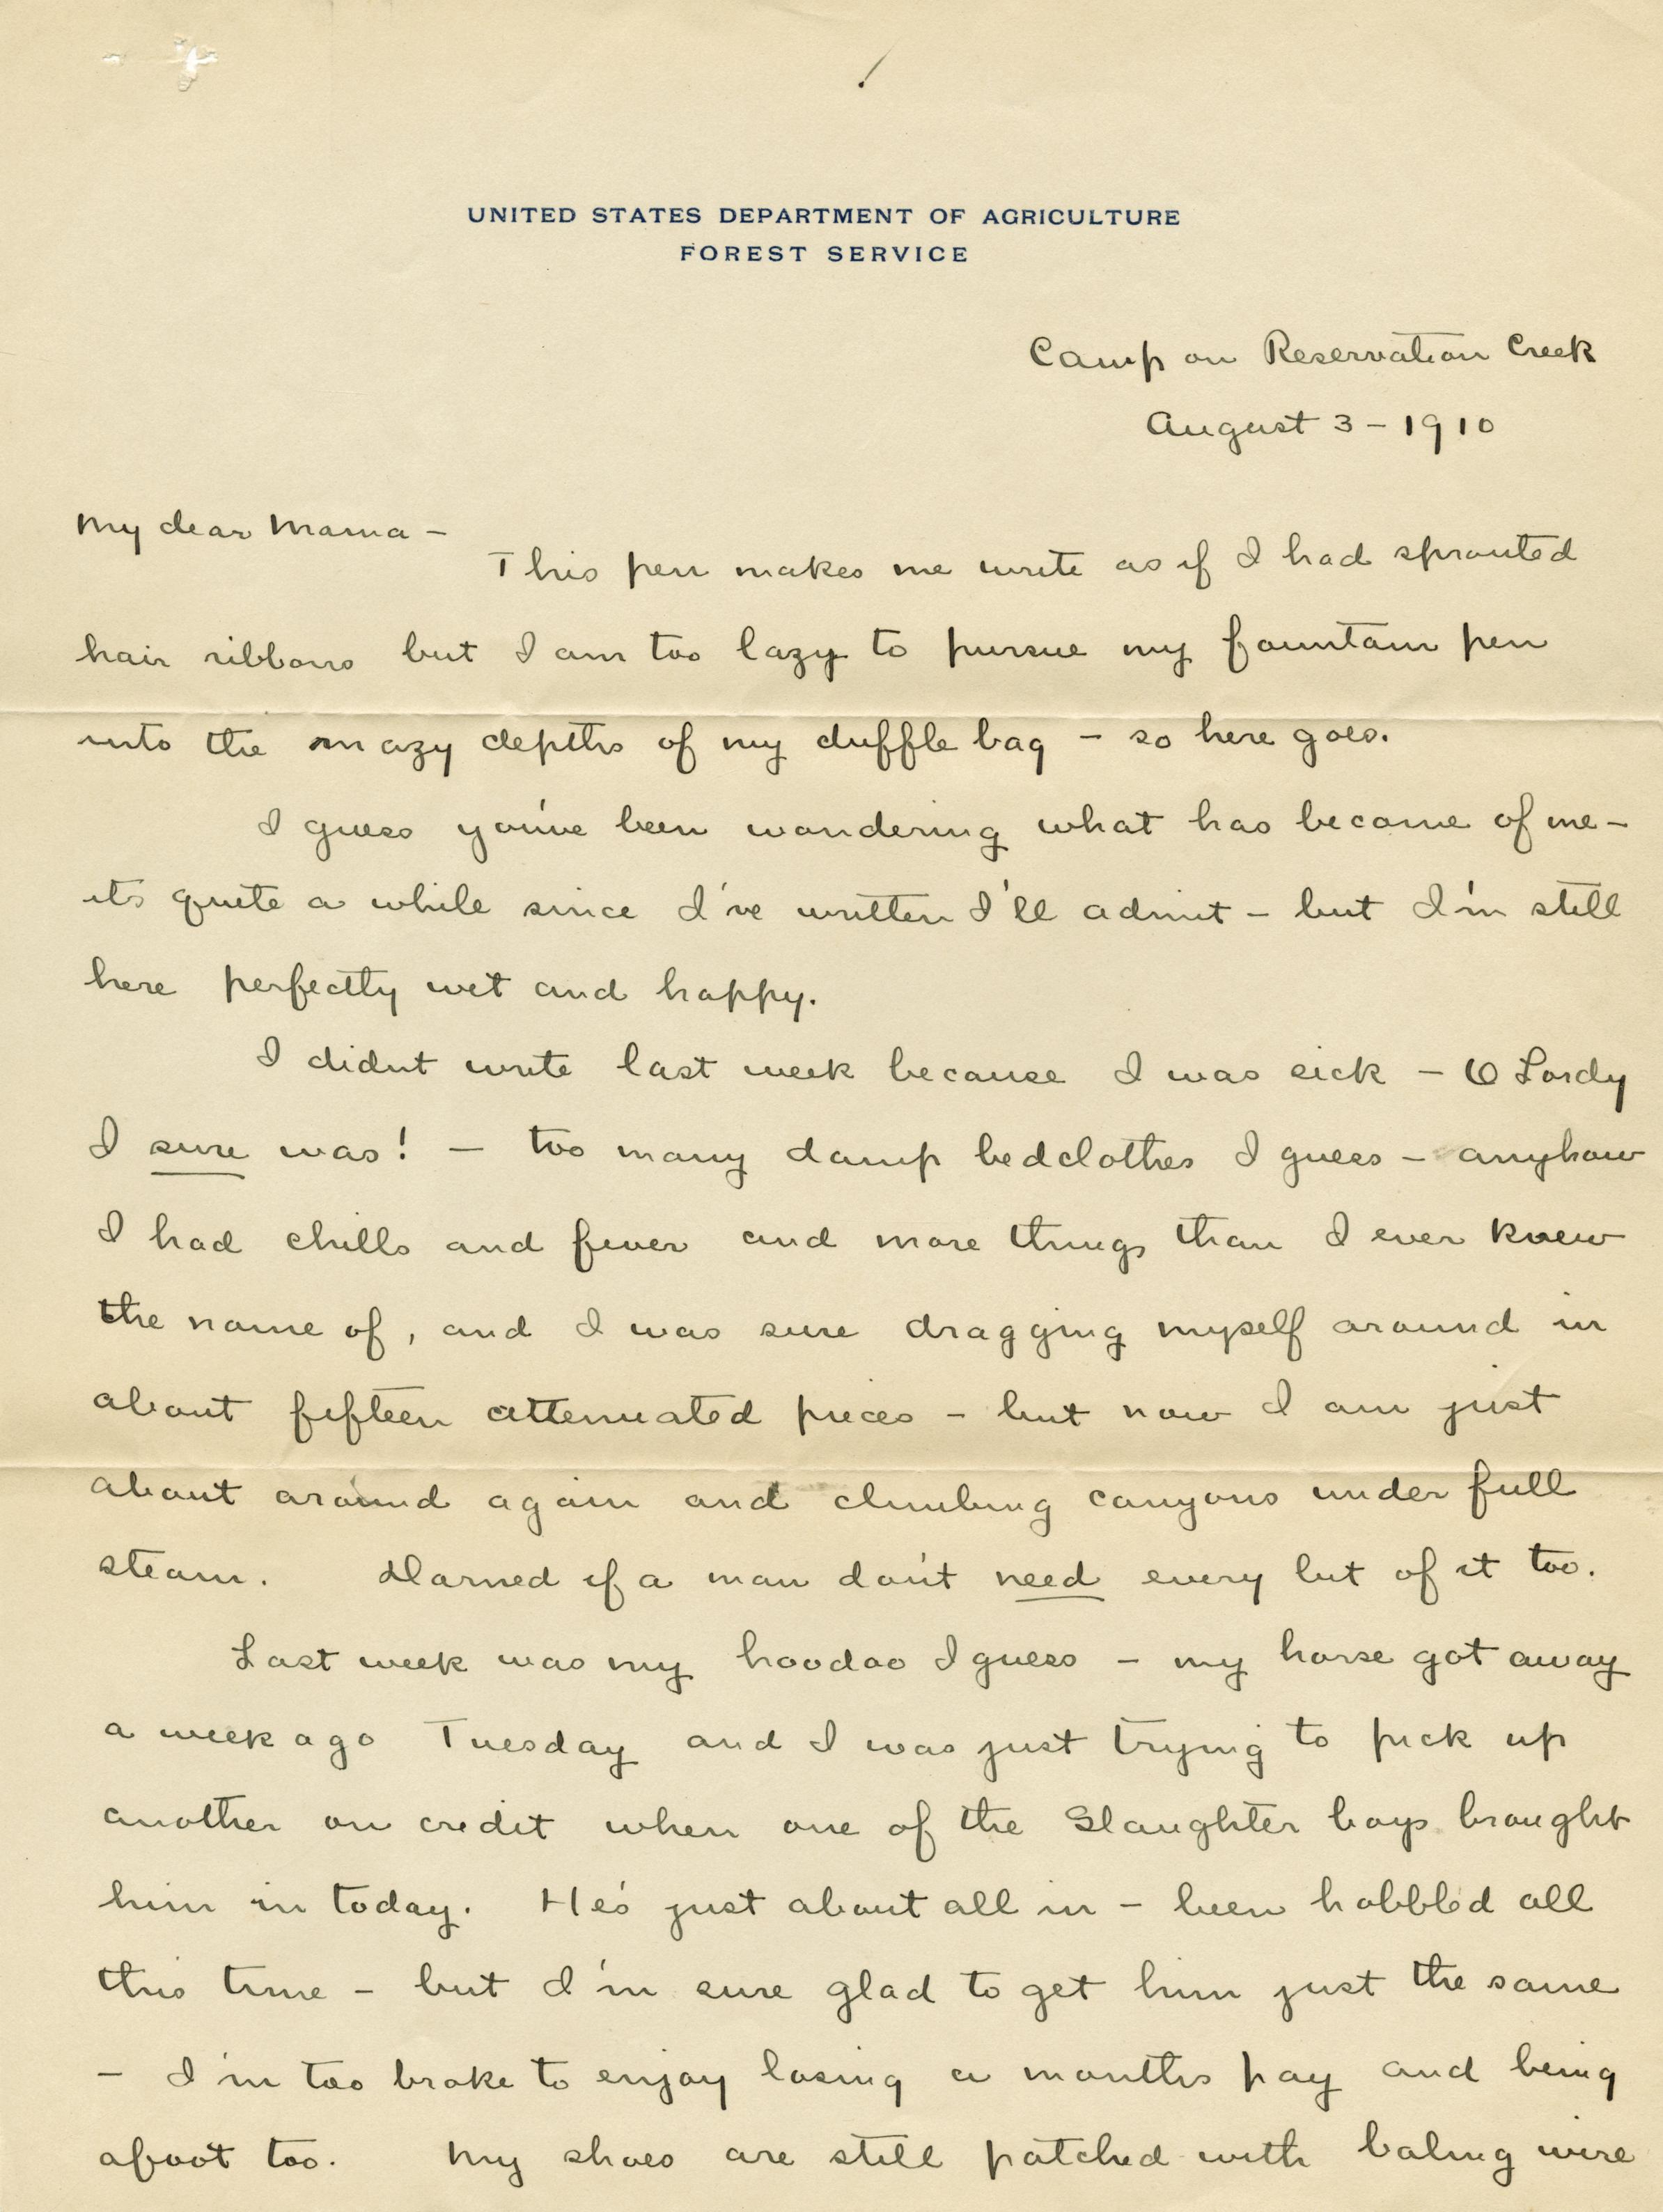 UNITED STATES DEPARTMENT OF AGRICULTURE
FOREST SERVICE
Camp on Reservation Creek
August 3 - 1910
My dear Mama -
This pen makes me write as if I had sprouted
hair ribbons but I am too lazy to pursue my fountain pen
into the mazy depths of my duffle bag - so here goes.
I guess you've been wondering what has become of me -
its quite a while since I've written I'll admit - but I'm still
here perfectly wet and happy.
I didnt write last week because I was sick - O Lordy
I sure was! - too many damp bedclothes I guess - anyhow
I had chills and fever and more things than I ever knew
the name of, and I was sure dragging myself around in
about fifteen attenuated pieces - but now I am just
about around again and climbing canyons under full
steam. Darned if a man don't need every bit of it too.
Last week was my hoodoo I guess - my horse got away
a week ago Tuesday and I was just trying to pick up
another on credit when one of the Slaughter boys brought
him in today. He's just about all in - been hobbled all
this time - but I'm sure glad to get him just the same
- I'm too broke to enjoy losing a months pay and being
afoot too. My shoes are still patched with baling wire